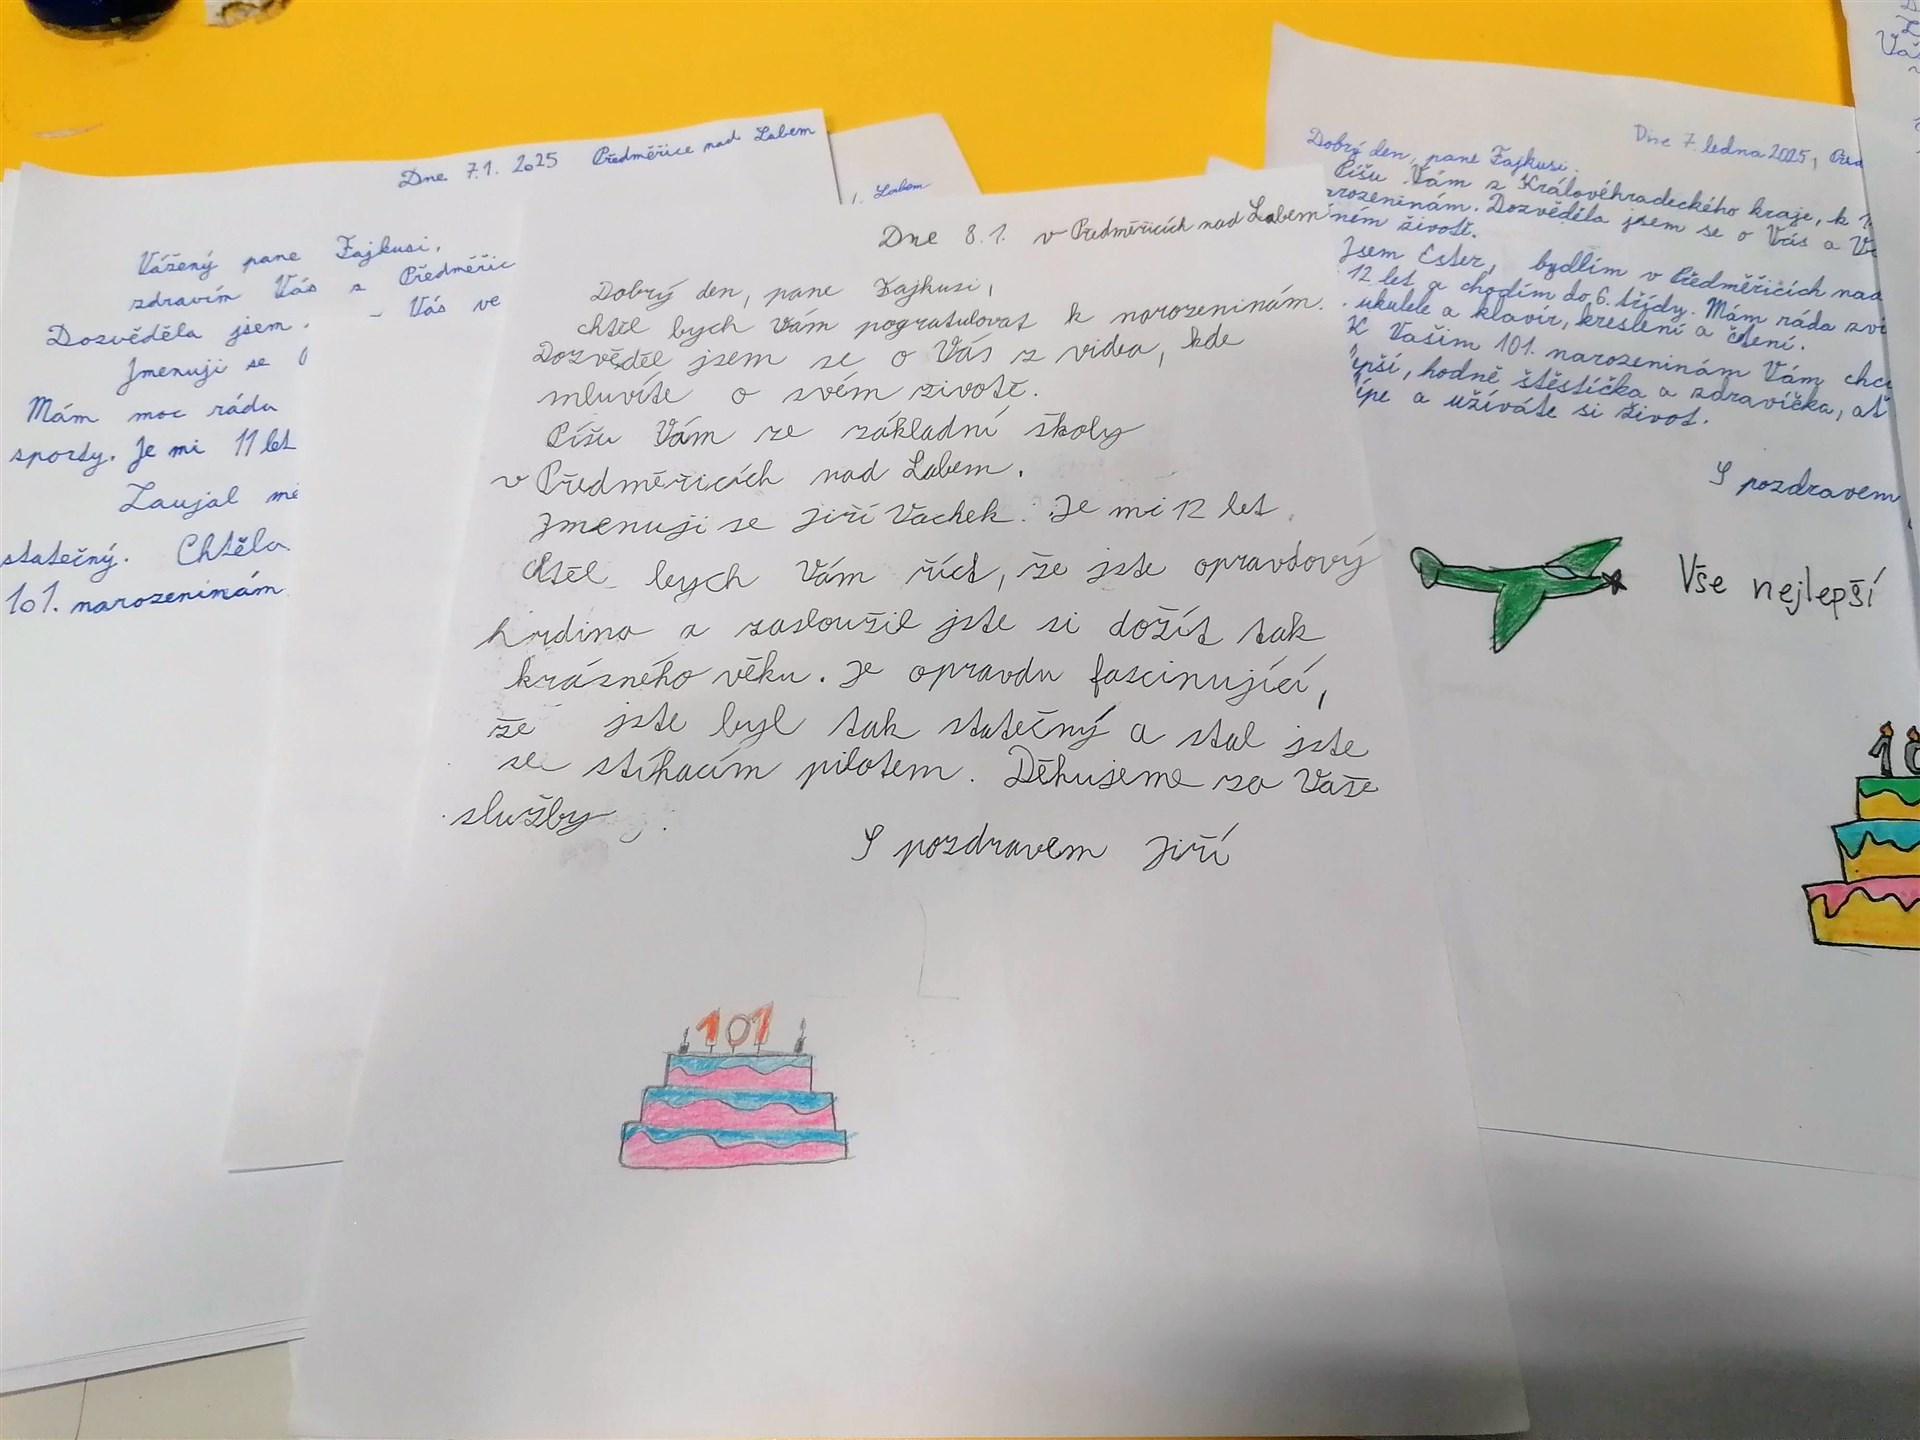 Dne 7.1. 2025 Předměřice nad Labem
Vážený pane Fajkusi,
zdravím Vás z Předměřic
Dozvěděla jsem
- Vás ve
Jmenuji se
Mám moc ráda
sporty. Je mi 11 let
Zaujal mě
statečný. Chtěla
101. narozeninám
Labem
Dne 8.1. v Předměřicích nad Labem
Dobrý den, pane Fajkusi,
chtěl bych Vám pogratulovat k narozeninám.
Dozvěděl jsem se o Vás z videa, kde
mluvíte o svém životě.
Píšu Vám ze základní školy
v Předměřicích nad Labem.
Jmenuji se Jiří Vachek. Je mi 12 let.
Chtěl bych Vám říct, že jste opravdový
hrdina a zasloužil jste si dožít tak
krásného věku. Je opravdu fascinující,
že jste byl tak statečný a stal jste
se stíhacím pilotem. Děkujeme za Vaše
služby.
S pozdravem Jiří
101
Dne 7. ledna 2025, Před
Dobrý den, pane Fajkusi.
Píšu Vám z Královéhradeckého kraje, k
rozeninám. Dozvěděla jsem se o Vás a
ném životě.
Jsem Ester, bydlím v Předměřicích nad
12 let a chodím do 6. třídy. Mám ráda zví
ukulele a klavír, kreslení a čtení.
K Vašim 101. narozeninám Vám chci
epší, hodně štěstíčka a zdravíčka, ať
ípe a užíváte si život.
S pozdravem
Vše nejlepší
10